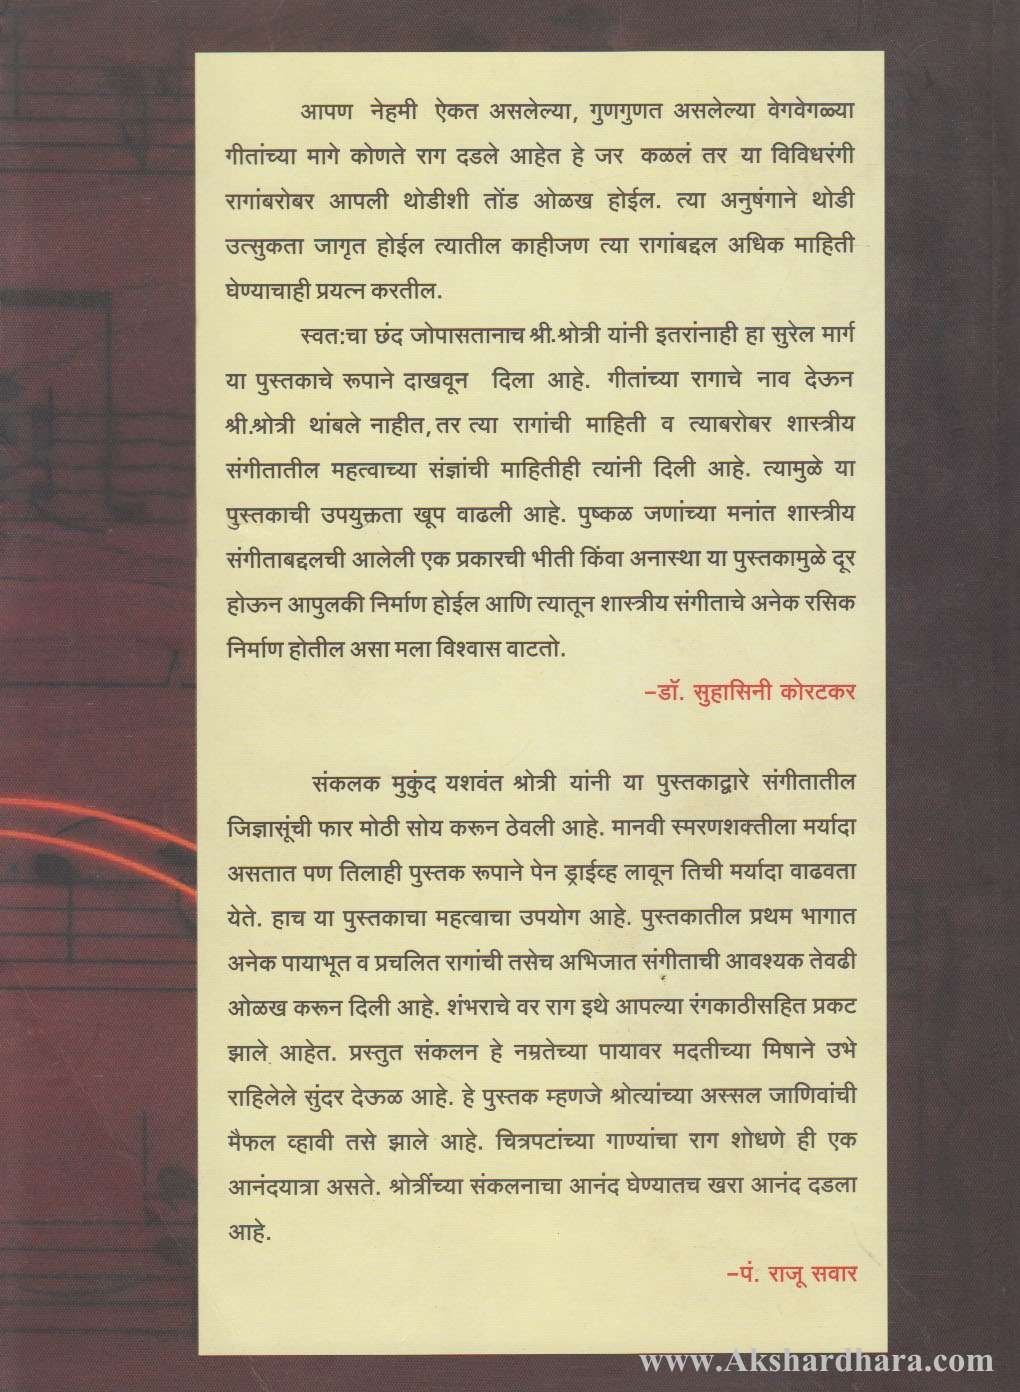 आपण नेहमी ऐकत असलेल्या, गुणगुणत असलेल्या वेगवेगळ्या
गीतांच्या मागे कोणते राग दडले आहेत हे जर कळलं तर या विविधरंगी
रागांबरोबर आपली थोडीशी तोंड ओळख होईल. त्या अनुषंगाने थोडी
उत्सुकता जागृत होईल त्यातील काहीजण त्या रागांबद्दल अधिक माहिती
घेण्याचाही प्रयत्न करतील.
स्वत:चा छंद जोपासतानाच श्री.श्रोत्री यांनी इतरांनाही हा सुरेल मार्ग
या पुस्तकाचे रूपाने दाखवून दिला आहे. गीतांच्या रागाचे नाव देऊन
श्री.श्रोत्री थांबले नाहीत, तर त्या रागांची माहिती व त्याबरोबर शास्त्रीय
संगीतातील महत्वाच्या संज्ञांची माहितीही त्यांनी दिली आहे. त्यामुळे या
पुस्तकाची उपयुक्तता खूप वाढली आहे. पुष्कळ जणांच्या मनांत शास्त्रीय
संगीताबद्दलची आलेली एक प्रकारची भीती किंवा अनास्था या पुस्तकामुळे दूर
होऊन आपुलकी निर्माण होईल आणि त्यातून शास्त्रीय संगीताचे अनेक रसिक
निर्माण होतील असा मला विश्वास वाटतो.
–डॉ. सुहासिनी कोरटकर
संकलक मुकुंद यशवंत श्रोत्री यांनी या पुस्तकाद्वारे संगीतातील
जिज्ञासूंची फार मोठी सोय करून ठेवली आहे. मानवी स्मरणशक्तीला मर्यादा
असतात पण तिलाही पुस्तक रूपाने पेन ड्राईव्ह लावून तिची मर्यादा वाढवता
येते. हाच या पुस्तकाचा महत्वाचा उपयोग आहे. पुस्तकातील प्रथम भागात
अनेक पायाभूत व प्रचलित रागांची तसेच अभिजात संगीताची आवश्यक तेवढी
ओळख करून दिली आहे. शंभराचे वर राग इथे आपल्या रंगकाठीसहित प्रकट
झाले आहेत. प्रस्तुत संकलन हे नम्रतेच्या पायावर मदतीच्या मिषाने उभे
राहिलेले सुंदर देऊळ आहे. हे पुस्तक म्हणजे श्रोत्यांच्या अस्सल जाणिवांची
मैफल व्हावी तसे झाले आहे. चित्रपटांच्या गाण्यांचा राग शोधणे ही एक
आनंदयात्रा असते. श्रोत्रींच्या संकलनाचा आनंद घेण्यातच खरा आनंद दडला
आहे.
–पं. राजू सवार
www.Akshardhara.com